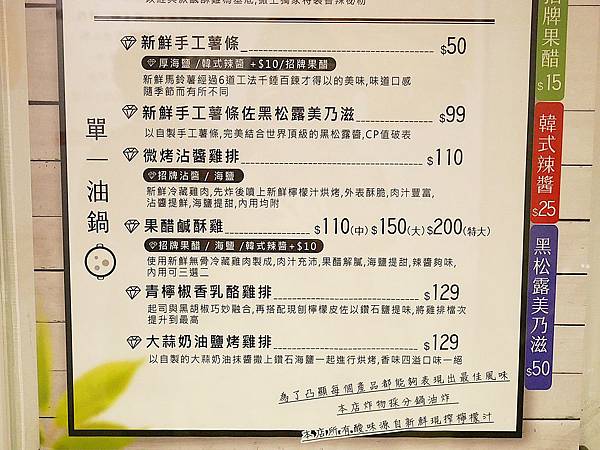 新鮮手工薯條 $50
厚海鹽 /韓式辣醬 +$10/招牌果醋
新鮮馬鈴薯經過6道工法千錘百鍊才得以的美味,味道口感
隨季節而有所不同
新鮮手工薯條佐黑松露美乃滋 $99
以自製手工薯條,完美結合世界頂級的黑松露醬,CP值破表
微烤沾醬雞排 $110
招牌沾醬 / 海鹽
新鮮冷藏雞肉,先炸後噴上新鮮檸檬汁烘烤,外表酥脆,肉汁豐富,
沾醬提鮮,海鹽提甜,內用均附
果醋鹹酥雞 $110(中) $150(大) $200(特大)
招牌果醋 / 海鹽 /韓式辣醬+$10
使用新鮮無骨冷藏雞肉製成,肉汁充沛,果醋解膩,海鹽提甜,辣醬夠味,
內用可三選二
青檸椒香乳酪雞排 $129
起司與黑胡椒巧妙融合,再搭配現刨檸檬皮佐以鑽石鹽提味,將雞排檔次
提升到最高
大蒜奶油鹽烤雞排 $129
以自製的大蒜奶油抹醬撒上鑽石海鹽一起進行烘烤,香味四溢口味一絕
單一油鍋
為了凸顯每個產品都能夠表現出最佳風味
本店炸物採分鍋油炸
本店所有酸味源自新鮮現搾檸檬汁
招牌果醋
$15
韓式辣醬
$25
黑松露美乃滋
$50